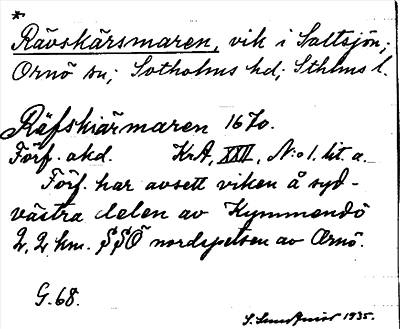 *
Rävskärsmaren, vik i Saltsjön;
Ornö sn; Sotholms hd; Sthlms l.
Räfskiärmaren 1670.
Förf. okd. KrA, XXII, N:o 1. lit. a.
Förf. har avsett viken å syd-
västra delen av Kymmendö
2,2 km. SSÖ nordspetsen av Ornö.
G. 68.
1935.